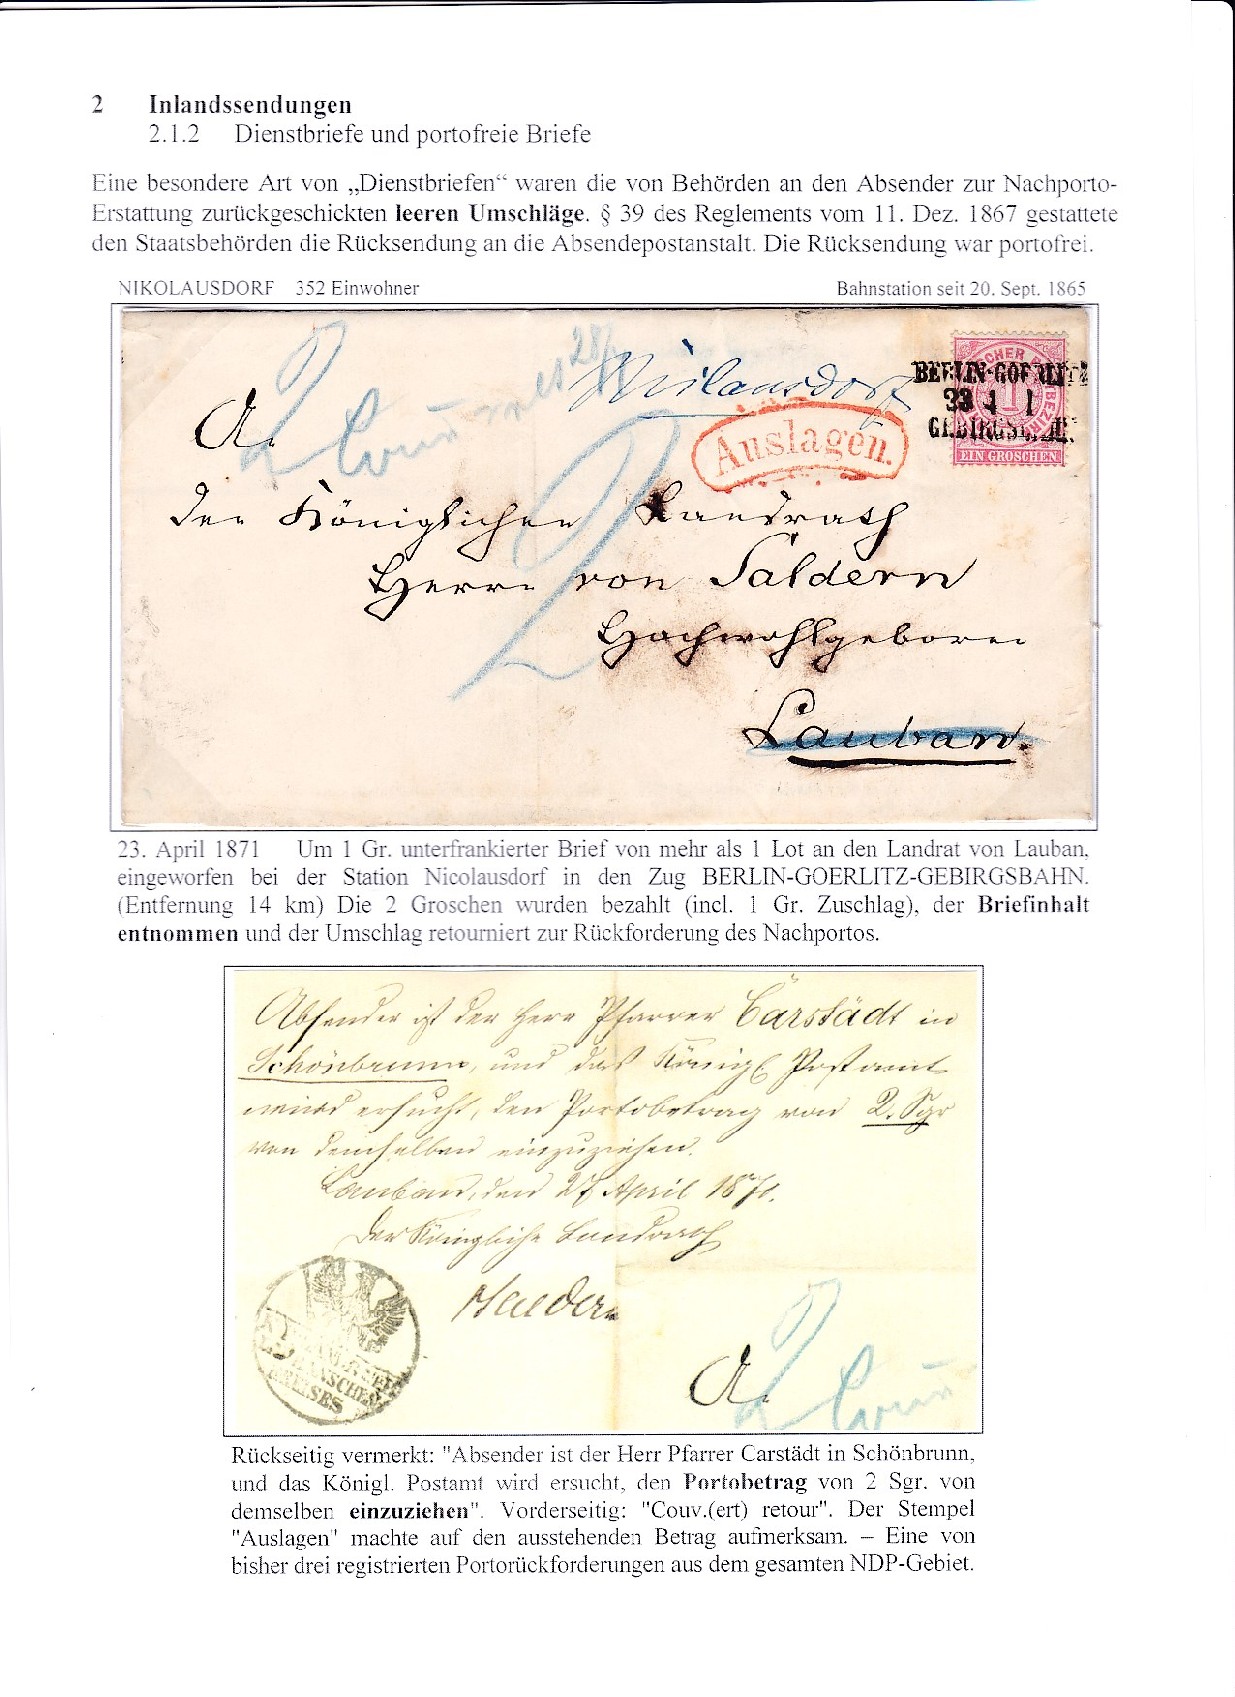 2 Inlandssendungen
2.1.2 Dienstbriefe und portofreie Briefe
Eine besondere Art von „Dienstbriefen“ waren die von Behörden an den Absender zur Nachporto-
Erstattung zurückgeschickten leeren Umschläge. § 39 des Reglements vom 11. Dez. 1867 gestattete
den Staatsbehörden die Rücksendung an die Absendepostanstalt. Die Rücksendung war portofrei.
NIKOLAUSDORF 352 Einwohner
Bahnstation seit 20. Sept. 1865
BERLIN-GOERLITZ
23 4 I
GEBIRGSBAHN
EIN GROSCHEN
Auslagen.
den Königlichen Landrath
Herrn von Saldern
Hochwohlgeboren
Lauban.
2
23. April 1871 Um 1 Gr. unterfrankierter Brief von mehr als 1 Lot an den Landrat von Lauban,
eingeworfen bei der Station Nicolausdorf in den Zug BERLIN-GOERLITZ-GEBIRGSBAHN.
(Entfernung 14 km) Die 2 Groschen wurden bezahlt (incl. 1 Gr. Zuschlag), der Briefinhalt
entnommen und der Umschlag retourniert zur Rückforderung des Nachportos.
Absender ist der Herr Pfarrer Carstädt in
Schönbrunn, und das Königl Postamt
wird ersucht, den Portobetrag von 2. Sgr
von demselben einzuziehen.
Lauban, den 27 April 1871.
Der Königliche Landrath
Rückseitig vermerkt: "Absender ist der Herr Pfarrer Carstädt in Schönbrunn,
und das Königl. Postamt wird ersucht, den Portobetrag von 2 Sgr. von
demselben einzuziehen". Vorderseitig: "Couv.(ert) retour". Der Stempel
"Auslagen" machte auf den ausstehenden Betrag aufmerksam. – Eine von
bisher drei registrierten Portorückforderungen aus dem gesamten NDP-Gebiet.